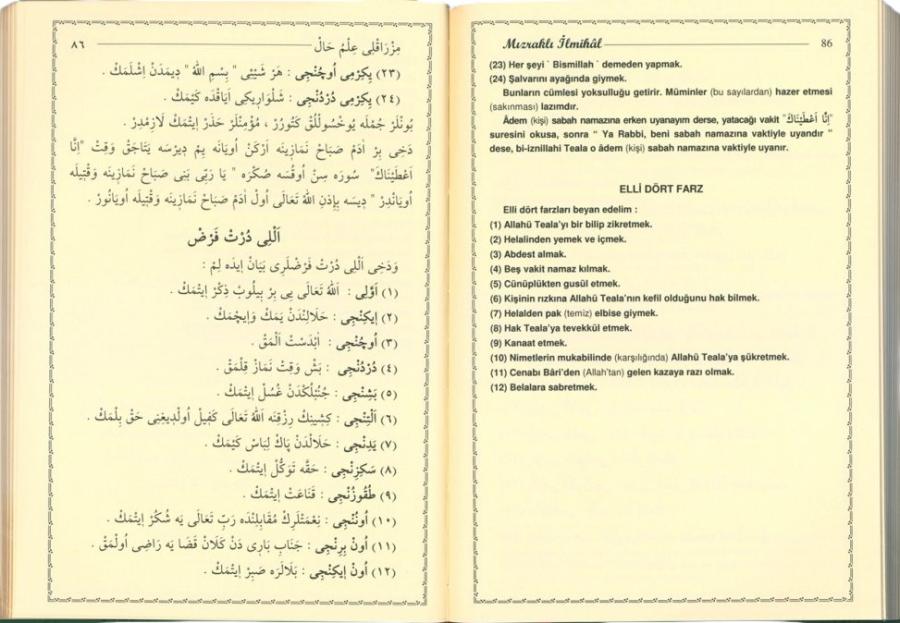 ٨٦ مِزْرَاقْلِى عِلْمِ حَالْ
(٢٣) يِكِرْمِى اُوچُنْجِى : هَرْ شَيْئِى " بِسْمِ اللهْ " دِيمَدَنْ اِشْلَمَكْ .
(٢٤) يِكِرْمِى دُرْدُنْجِى : شَلْوَارِيكِى اَيَاقْدَه كَيْمَكْ .
بُونْلَرْ جُمْلَه يُوخْسُولْلُقْ كَتُورُرْ ، مُؤْمِنْلَرْ حَذَرْ اِيتْمَكْ لَازِمْدِرْ .
دَخِى بِرْ اٰدَمْ صَبَاحْ نَمَازِينَه اَرْكَنْ اُويَانَه يِمْ دِيرْسَه يَتَاجَقْ وَقِتْ " اِنَّا
اَعْطَيْنَاكَ" سُورَه سِنْ اُوقُسَه صُكْرَه " يَا رَبِّى بَنِى صَبَاحْ نَمَازِينَه وَقْتِيلَه
اُويَانْدِرْ " دِيسَه بِاِذْنِ اللهِ تَعَالَى اُولْ اٰدَمْ صَبَاحْ نَمَازِينَه وَقْتِيلَه اُويَانُورْ .
اَللِى دُرْتْ فَرْضْ
وَدَخِى اَللِى دُرْتْ فَرْضْلَرِى بَيَانْ اِيدَه لِمْ :
(١) اَوَّلِى : اَللهُ تَعَالَى يِى بِرْ بِيلُوبْ ذِكْرْ اِيتْمَكْ .
(٢) اِيكِنْجِى : حَلَالِنْدَنْ يَمَكْ وَاِيچْمَكْ .
(٣) اُوچُنْجِى : اٰبْدَسْتْ اَلْمَقْ .
(٤) دُرْدُنْجِى : بَشْ وَقِتْ نَمَازْ قِلْمَقْ .
(٥) بَشِنْجِى : جُنُبْلُكْدَنْ غُسْلْ اِيتْمَكْ .
(٦) اَلْتِنْجِى : كِشِينِكْ رِزْقِنَه اَللهُ تَعَالَى كَفِيلْ اُولْدِيغِنِى حَقْ بِلْمَكْ .
(٧) يَدِنْجِى : حَلَالْدَنْ پَاكْ لِبَاسْ كَيْمَكْ .
(٨) سَكِزِنْجِى : حَقَّه تَوَكُّلْ اِيتْمَكْ .
(٩) طُقُوزُنْجِى : قَنَاعَتْ اِيتْمَكْ .
(١٠) اُونُنْجِى : نِعْمَتْلَرِكْ مُقَابِلِنْدَه رَبِّ تَعَالَى يَه شُكُرْ اِيتْمَكْ .
(١١) اُونْ بِرِنْجِى : جَنَابِ بَارِى دَنْ كَلَانْ قَضَا يَه رَاضِى اُولْمَقْ .
(١٢) اُونْ اِيكِنْجِى : بَلَالَرَه صَبِرْ اِيتْمَكْ .
Mızraklı İlmihâl 86
(23) Her şeyi ` Bismillah ` demeden yapmak.
(24) Şalvarını ayağında giymek.
Bunların cümlesi yoksulluğu getirir. Müminler (bu sayılardan) hazer etmesi
(sakınması) lazımdır.
Âdem (kişi) sabah namazına erken uyanayım derse, yatacağı vakit "اِنَّا اَعْطَيْنَاكَ"
suresini okusa, sonra " Ya Rabbi, beni sabah namazına vaktiyle uyandır "
dese, bi-iznillahi Teala o âdem (kişi) sabah namazına vaktiyle uyanır.
ELLİ DÖRT FARZ
Elli dört farzları beyan edelim :
(1) Allahü Teala'yı bir bilip zikretmek.
(2) Helalinden yemek ve içmek.
(3) Abdest almak.
(4) Beş vakit namaz kılmak.
(5) Cünüplükten gusül etmek.
(6) Kişinin rızkına Allahü Teala'nın kefil olduğunu hak bilmek.
(7) Helalden pak (temiz) elbise giymek.
(8) Hak Teala'ya tevekkül etmek.
(9) Kanaat etmek.
(10) Nimetlerin mukabilinde (karşılığında) Allahü Teala'ya şükretmek.
(11) Cenabı Bâri'den (Allah'tan) gelen kazaya razı olmak.
(12) Belalara sabretmek.